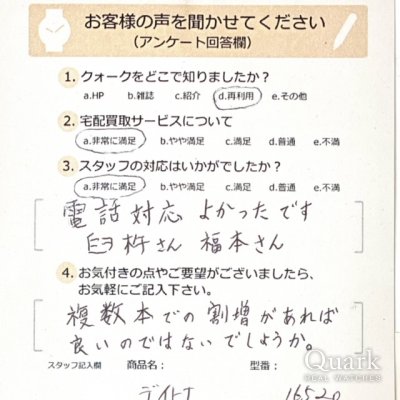 お客様の声を聞かせてください
(アンケート回答欄)
1. クォークをどこで知りましたか?
a.HP b.雑誌 c.紹介 d.再利用 e.その他
2. 宅配買取サービスについて
a.非常に満足 b.やや満足 c.満足 d.普通 e.不満
3. スタッフの対応はいかがでしたか?
a.非常に満足 b.やや満足 c.満足 d.普通 e.不満
電話対応よかったです
臼杵さん 福本さん
4. お気付きの点やご要望がございましたら、
お気軽にご記入下さい。
複数本での割増があれば
良いのではないでしょうか。
スタッフ記入欄 商品名: 型番:
デイトナ 16520
Quark
REAL WATCHES